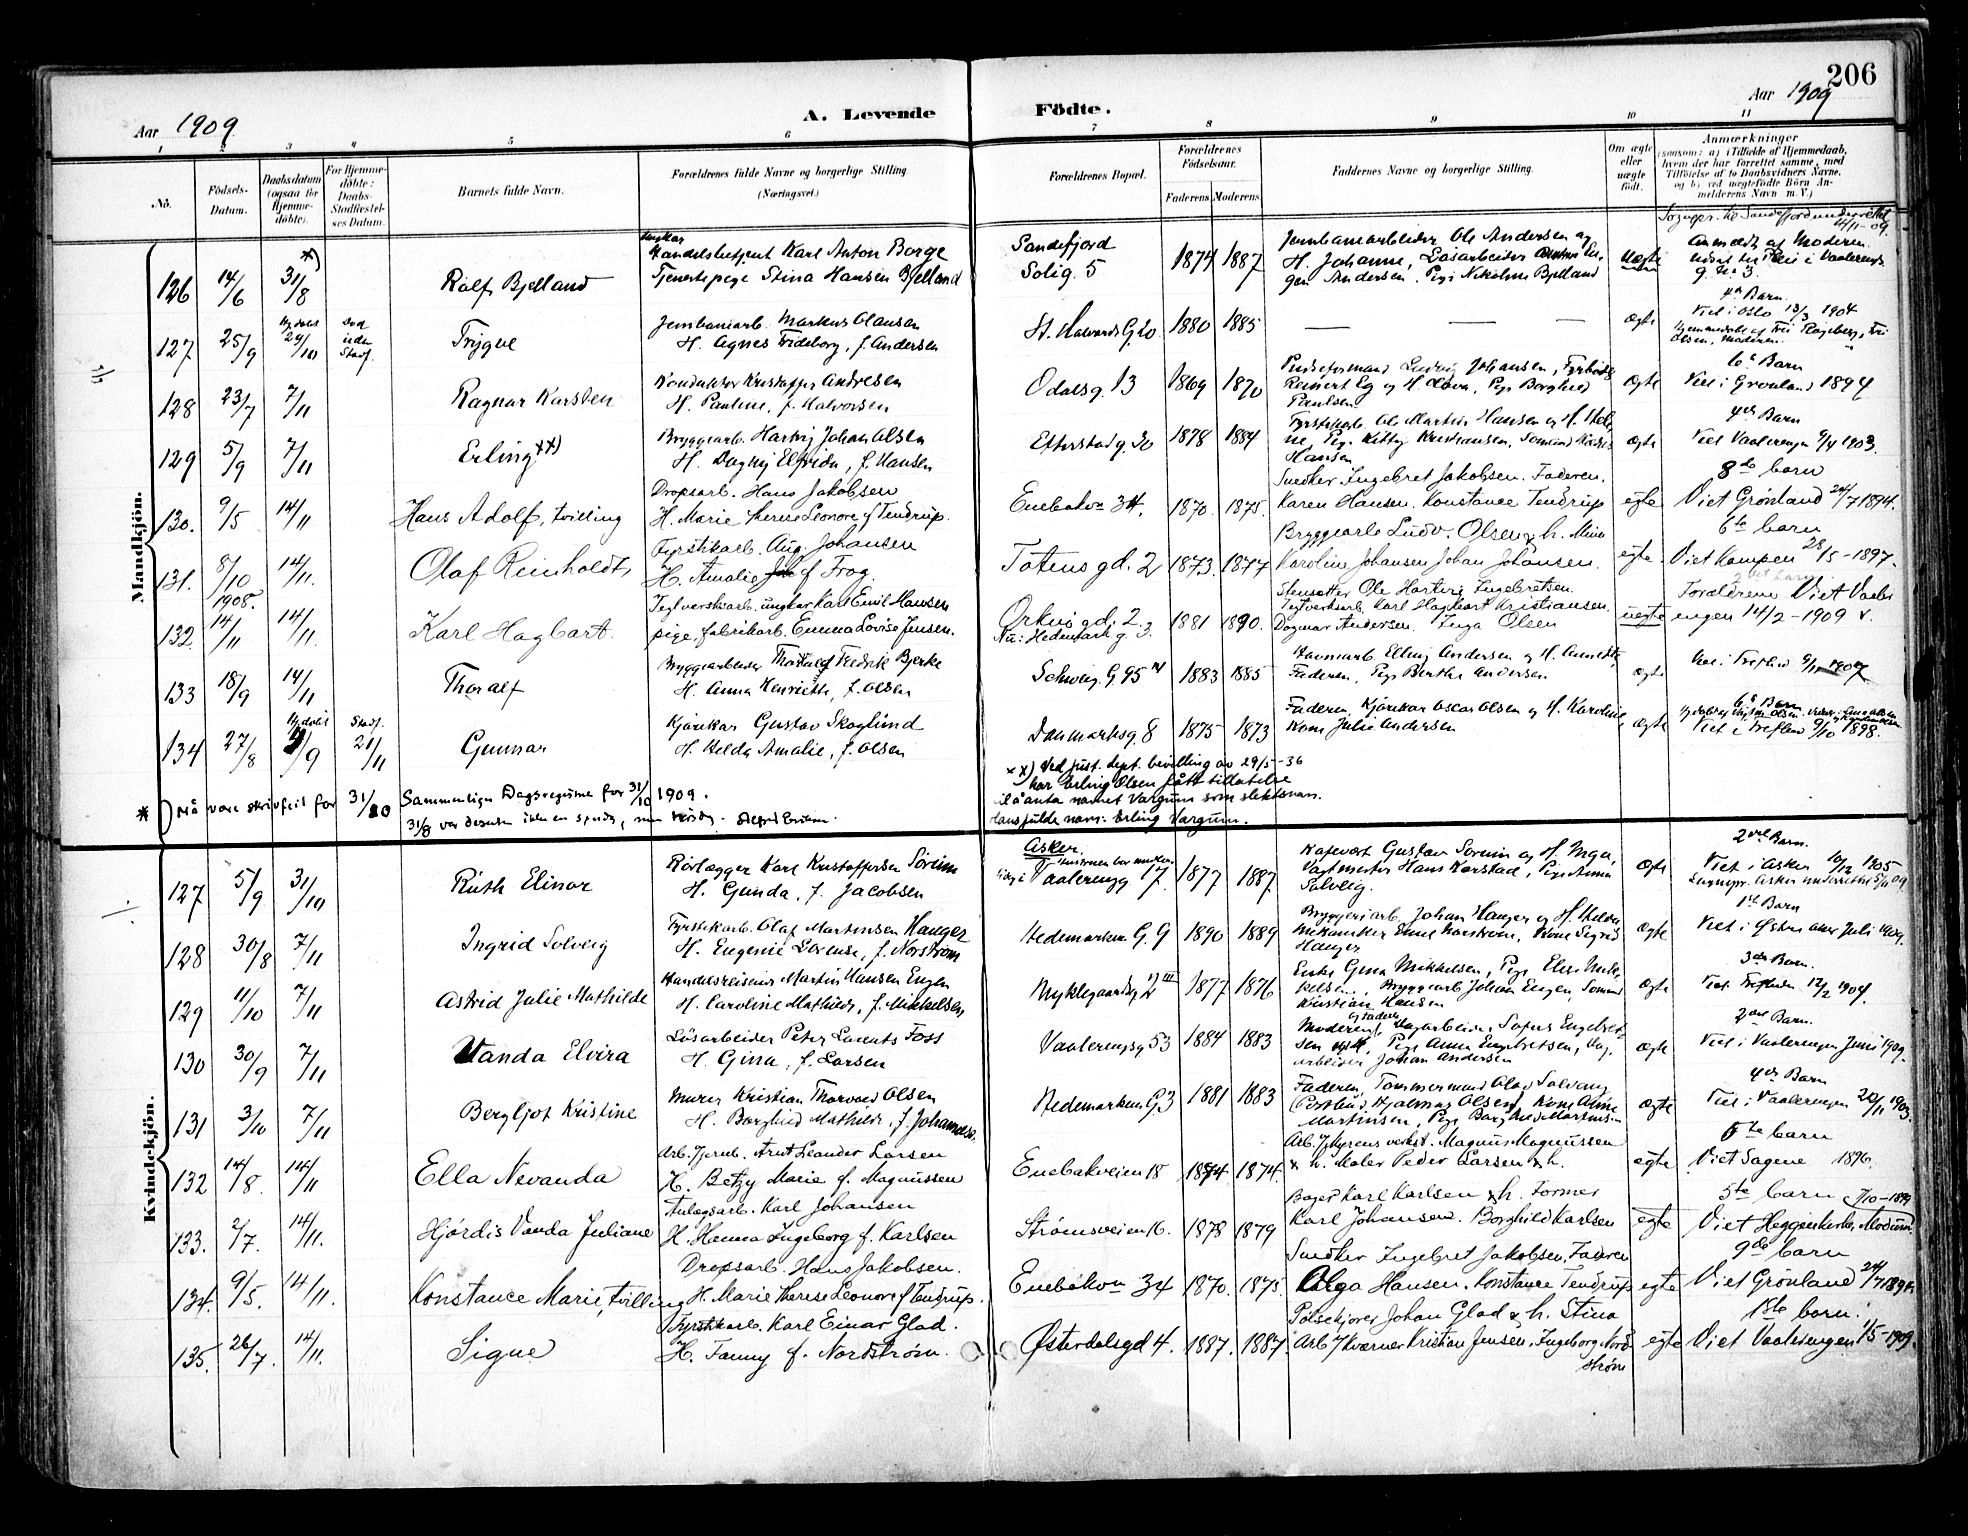 206
Aar 1909
A. Levende
Födte.
Aar 1909
1 2 3 4 5 6 7 8 9 10 11
No.
Födsels-Datum.
Daabsdatum (ogsaa for Hjemme-döbte).
For Hjemme-döbte: Daabs-Stadfæstel-ses Datum.
Barnets fulde Navn.
Forældrenes fulde Navne og borgerlige Stilling (Næringsvei.)
Forældrenes Bopæl.
Forældrenes Födselsaar.
Faderens Moderens
Faddernes Navne og borgerlige Stilling.
Om ægte eller uægte födt.
Anmærkninger
(saasom: a) i Tilfælde af Hjemmedaab, hvem der har forrettet samme, med Tilföielse af to Daabsvidners Navne, og b) ved uægtefödte Börn Anmelderens Navn m. V.)
Mandkjön.
126 14/6 31/8 *) Rolf Bjelland
Ungkar Handelsbetjent Karl Anton Borge
Tjenestepige Stina Hansen Bjelland
Sandefjord
Solig. 5
1874 1887
Jernbanearbeider Ole Andersen og
H. Johanne, Løsarbeider
Andersen, Pige Nikoline Bjelland
uægte
Anmeldt af Moderen
127 25/9 Hj.døbt 29/10 Død uden Stadf. Trygve
Jernbanearb. Markus Olausen
H. Agnes Frideborg, f. Andersen
St. Halvards G. 20 1880 1885 — — — ægte
4de Barn
Viet i Oslo 13/3 1904
Olsen, Moderen.
128 23/7 7/11 Ragnar Karsten
Konduktør Kristoffer Andresen
H. Pauline, f. Halvorsen
Odalsg. 13 1869 1870
Ludvig Johansen, Fyrbøder
Reinert Eg og H. Olava, Pige Borghild
Paulsen
ægte
6te Barn
Viet i Grønland 1894
129 5/9 7/11 Erling xx)
Bryggearb. Hartvig Johan Olsen
H. Dagny Elfrida, f. Hansen
Etterstadg. 20 1878 1884
Fyrstikarb. Ole Martin Hansen og H. Hel-
ne, Pige Kitty Kristiansen, Sømand
Hansen
ægte
4de Barn
Viet Vaalerengen 9/4 1903.
130. 9/5 14/11 Hans Adolf, tvilling
Dropsarb. Hans Jakobsen
H. Marie Therese Leonore f Tendrup.
Enebakvn 34. 1870. 1875.
Snedker Ingebret Jakobsen. Faderen.
Karen Hansen. Konstance Tendrup
egte
8de barn
Viet Grønland 24/7 1894.
131. 8/10 14/11. Olaf Reinholdt,
Fyrstikarb. Aug. Johansen
H. Amalie f Frog.
Totensgd. 2 1873. 1877
Bryggearb Ludv. Olsen & h. Mina
Karoline Johansen Johan Johansen.
egte.
6te barn
Viet Kampen 28/5-1897.
132. 1908. 14/11 14/11. Karl Hagbart.
Teglverksarb. ungkar Karl Emil Hansen
pige, fabrikarb. Emma Lovise Jensen.
Orknøgd. 2.
Nu: Hedemark g. 3.
1881 1890.
Stensætter Ole Hartvig Ingebretsen.
Teglverksarb. Karl Hagbart Kristiansen.
Dagmar Andersen. Inga Olsen
uegte
Forældrene Viet Vaaler
engen 14/2-1909
133 18/9 14/11 Thoralf
Bryggearbeider Thorleif Fredrik Bjerke
H. Anna Henriette, f. Olsen
Schweig. G. 95 IV 1883 1885
Havnearb. Elling Andersen og H. Annette
Faderen, Pige Berthe Andersen
ægte
Viet i Trefold. 1907
134 27/8 Hj.døbt /9 Stadf. 21/11 Gunnar
Kjørekar Gustav Skoglund
H. Helda Amalie, f. Olsen
Danmarksg. 8 1875 1873
Faderen, Kjørekar Oscar Olsen og H. Karoline
Kone Julie Andersen
ægte
6te Barn
Viet i Trefold 9/10 1898.
* ) Må være skrivfeil for 31/10 Sammenlign Dagsregisme for 31/10 1909.
31/8 var desuten ikke en søndag, men tirsdag.
xx) Ved just. dept. bevilling av 29/5-36
har Erling Olsen fått tillatelse
til å anta navnet Vargum som slektsnavn.
Hans fulde navn: Erling Vargum.
Kvindekjön.
127 5/9 31/10 Ruth Elinor
Rørlægger Karl Kristoffersen Søreim
H. Gunda, f. Jacobsen
Asker
Vaalerengg 17 1877 1887
Kafevært Gustav Søreim og H. Inga,
Vagtmester Hans Karstad, Pige Anna
Solveig.
ægte
2det Barn.
Viet i Asker 10/12 1905
128 30/8 7/11 Ingrid Solveig
Fyrstikarb. Olaf Martinsen Hauger
H. Eugenie Lorense, f. Norstrøm
Hedemarken G. 9 1890 1889
Bryggeriarb. Johan Hauger og H. Hilda
Mekaniker Emil Norstrøm, Kone Sigrid
Hauger
ægte
1ste Barn
Viet i Østre Aker Juli 1909.
129 11/10 7/11 Astrid Julie Mathilde
Handelsreisende Martin Hansen Engen
H. Caroline Mathilde, f. Mikkelsen
Nyklegaardsg 2 III 1877 1876
Enke Gina Mikkelsen, Pige Elise Mik-
kelsen, Bryggearb Johan Engen, Sømand
Kristian Hansen
ægte
3die Barn.
Viet Trefold. 12/2 1904.
130 30/9 7/11 Vanda Elvira
Løsarbeider Peter Laurits Foss
H. Gina, f. Larsen
Vaalerengsg 53 1884 1883
Moderen og Faderen, Dagarbeider Sofus Engebret-
sen, Pige Anna Engebretsen, Dag.
arbeider Johan Andersen
ægte
2det Barn.
Viet i Vaalerengen Juni 1909.
131 3/10 7/11 Bergljot Kristine
Murer Kristian Thorvald Olsen
H. Borghild Mathilde, f. Johansen.
Hedemarken G. 3 1881 1883
Faderen, Tømmermand Olav Solvang
(Postbud Hjalmar Olsen) Kone Anne
Martinsen, Pige Borghild Martins-
ægte
4de Barn
Viet i Vaalerengen 20/11 1903.
132 14/8. 14/11 Ella Nevanda
Arb. Jernb. Arnt Leander Larsen
H. Betzy Marie f. Magnussen
Enebakveien 18 1874 1874.
Arb. Myrens verkst. Magnus Magnussen
& h. Maler Peder Larsen & h.
egte
5te barn
Viet Sagene 1896.
133. 2/7. 14/11. Hjørdis Vanda Juliane
Anlægsarb. Karl Johansen
H. Hanna Ingeborg f. Karlsen
Strømsveien 16. 1878 1879
Bager Karl Karlsen & h. Former
Karl Johansen. Borghild Karlsen
egte
5te barn
Viet Heggenkirke, Modum.
134. 9/5. 14/11. Konstance Marie, tvilling
Dropsarb. Hans Jakobsen.
H. Marie Therese Leonore f Tendrup.
Enebakvn 34 1870. 1875.
Snedker Ingebret Jakobsen, Faderen
Olga Hansen. Konstance Tendrup
egte
9de barn
Viet Grønland 24/7 1894.
135. 26/7. 14/11. Signe
Fyrstikarb. Karl Einar Glad.
H. Fanny f. Nordstrøm.
Østerdalsgd 4. 1887. 1887.
Pølsekjører Johan Glad & h. Stina
Arb. Kværner Kristian Jensen, Ingeborg Nord
strøm
egte
1ste barn.
Viet Vaalerengen 1/5-1909.